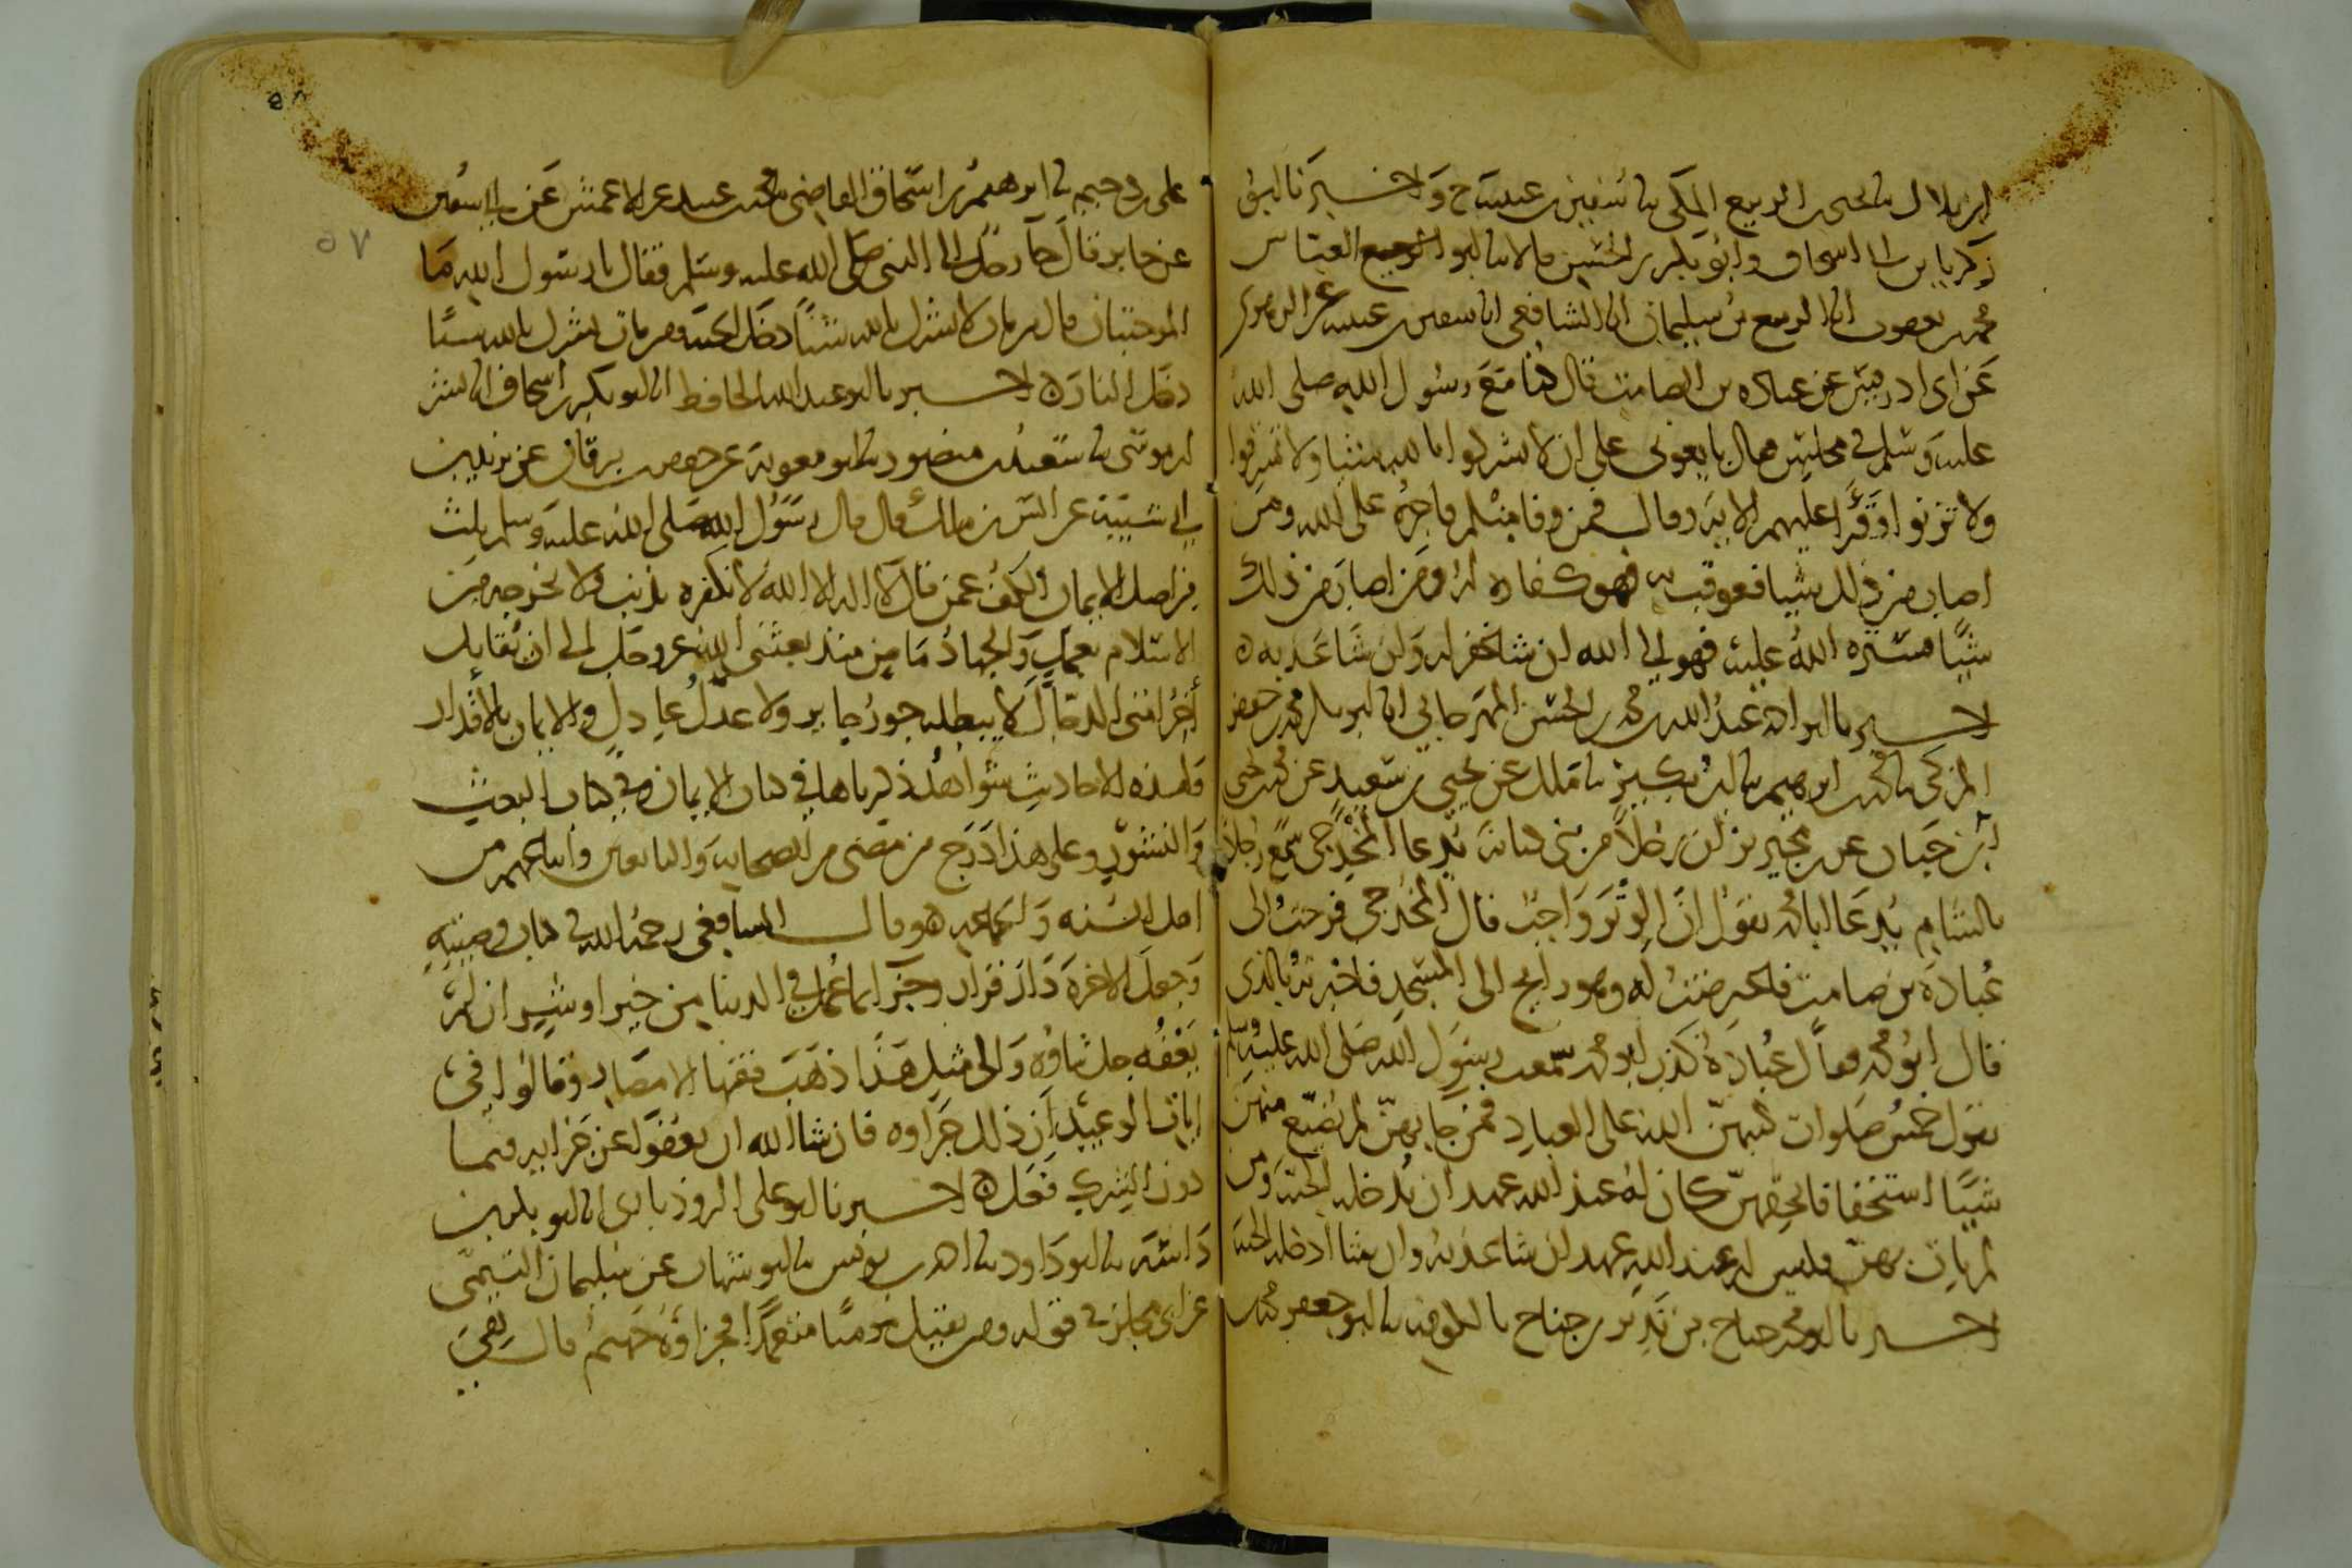 ابن بلال نا يحيى بن الربيع المكي نا سفين بن عيينة ح واخبرنا ابو
زكريا بن ابي اسحاق وابو بكر بن الحسين قالا نا ابو العباس
محمد بن يعقوب انا الربيع بن سليمان انا الشافعي انا سفين بن عيينة عن الزهري
عن ابي ادريس عن عبادة بن الصامت قال كنا مع رسول الله صلى الله
عليه وسلم في مجلس فقال بايعوني على ان لا تشركوا بالله شيئا ولا تسرقوا
ولا تزنوا وقرا عليهم الاية وقال فمن وفا منكم فاجره على الله ومن
اصاب من ذلك شيا فعوقب به فهو كفارة له ومن اصاب من ذلك
شيا فستره الله عليه فهو الى الله ان شا غفر له وان شا عذبه ه
اخبرنا ابو احمد عبد الله بن محمد بن الحسن المهرجاني انا ابو بكر محمد بن جعفر
المزكي نا محمد بن ابرهيم نا ابن بكير نا ملك عن يحيى بن سعيد عن محمد بن يحيى
ابن حبان عن بن محيريز ان رجلا من بني كنانة يدعا المخدجي سمع رجلا
بالشام يدعا ابا محمد يقول ان الوتر واجب قال المخدجي فرحت الى
عبادة بن صامت فاعترضت له وهو رايح الى المسجد فاخبرته بالذي
قال ابو محمد فقال عبادة كذب ابو محمد سمعت رسول الله صلى الله عليه وسلم
يقول خمس صلوات كتبهن الله على العباد فمن جا بهن لم يضيع منهن
شيا استخفافا بحقهن كان له عند الله عهد ان يدخله الجنة ومن
لم يات بهن فليس له عند الله عهد ان شا عذبه وان شا ادخله الجنة
اخبرنا ابو محمد جناح بن نذير بن جناح بالكوفة نا ابو جعفر محمد بن
على بن دحيم نا ابرهيم بن اسحاق القاضي نا محمد بن عبيد عن الاعمش عن ابي سفين
عن جابر قال جا رجل الى النبي صلى الله عليه وسلم فقال يا رسول الله ما
الموجبتان قال من مات لا يشرك بالله شيئا دخل الجنة ومن مات يشرك بالله شيئا
دخل النار ه اخبرنا ابو عبد الله الحافظ انا ابو بكر بن اسحاق انا بشر
ابن موسى نا سعيد بن منصور نا ابو معوية عن جعفر بن برقان عن يزيد بن
ابي شيبة عن انس بن مالك قال قال رسول الله صلى الله عليه وسلم ثلث
من اصل الايمان الكف عمن قال لا اله الا الله لا نكفره بذنب ولا نخرجه من
الاسلام بعمل والجهاد ماض منذ بعثني الله عز وجل الى ان يقاتل
اخر امتي الدجال لا يبطله جور جاير ولا عدل عادل والايمان بالاقدار
ولهذه الاحاديث شواهد ذكرناها في كتاب الايمان وفي كتاب البعث
والنشور وعلى هذا درج من مضى من الصحابة والتابعين واتباعهم من
اهل السنة والجماعة ه وقال الشافعي رحمه الله في كتاب وصيته
وجعل الاخرة دار قرار وجزا بما عمل في الدنيا من خير او شر ان لم
يعفه جل ثناؤه والى مثل هذا ذهب فقها الامصار وقالوا في
ايات الوعيد ان ذلك جزاوه فان شا الله ان يعفو عن جزايه فيما
دون الشرك فعل ه اخبرنا ابو علي الروذباري انا ابو بكر بن
داسة نا ابو داود نا احمد بن يونس نا ابو شهاب عن سليمان التيمي
عن ابي مجلز في قوله ومن يقتل مومنا متعمدا فجزاؤه جهنم قال هي